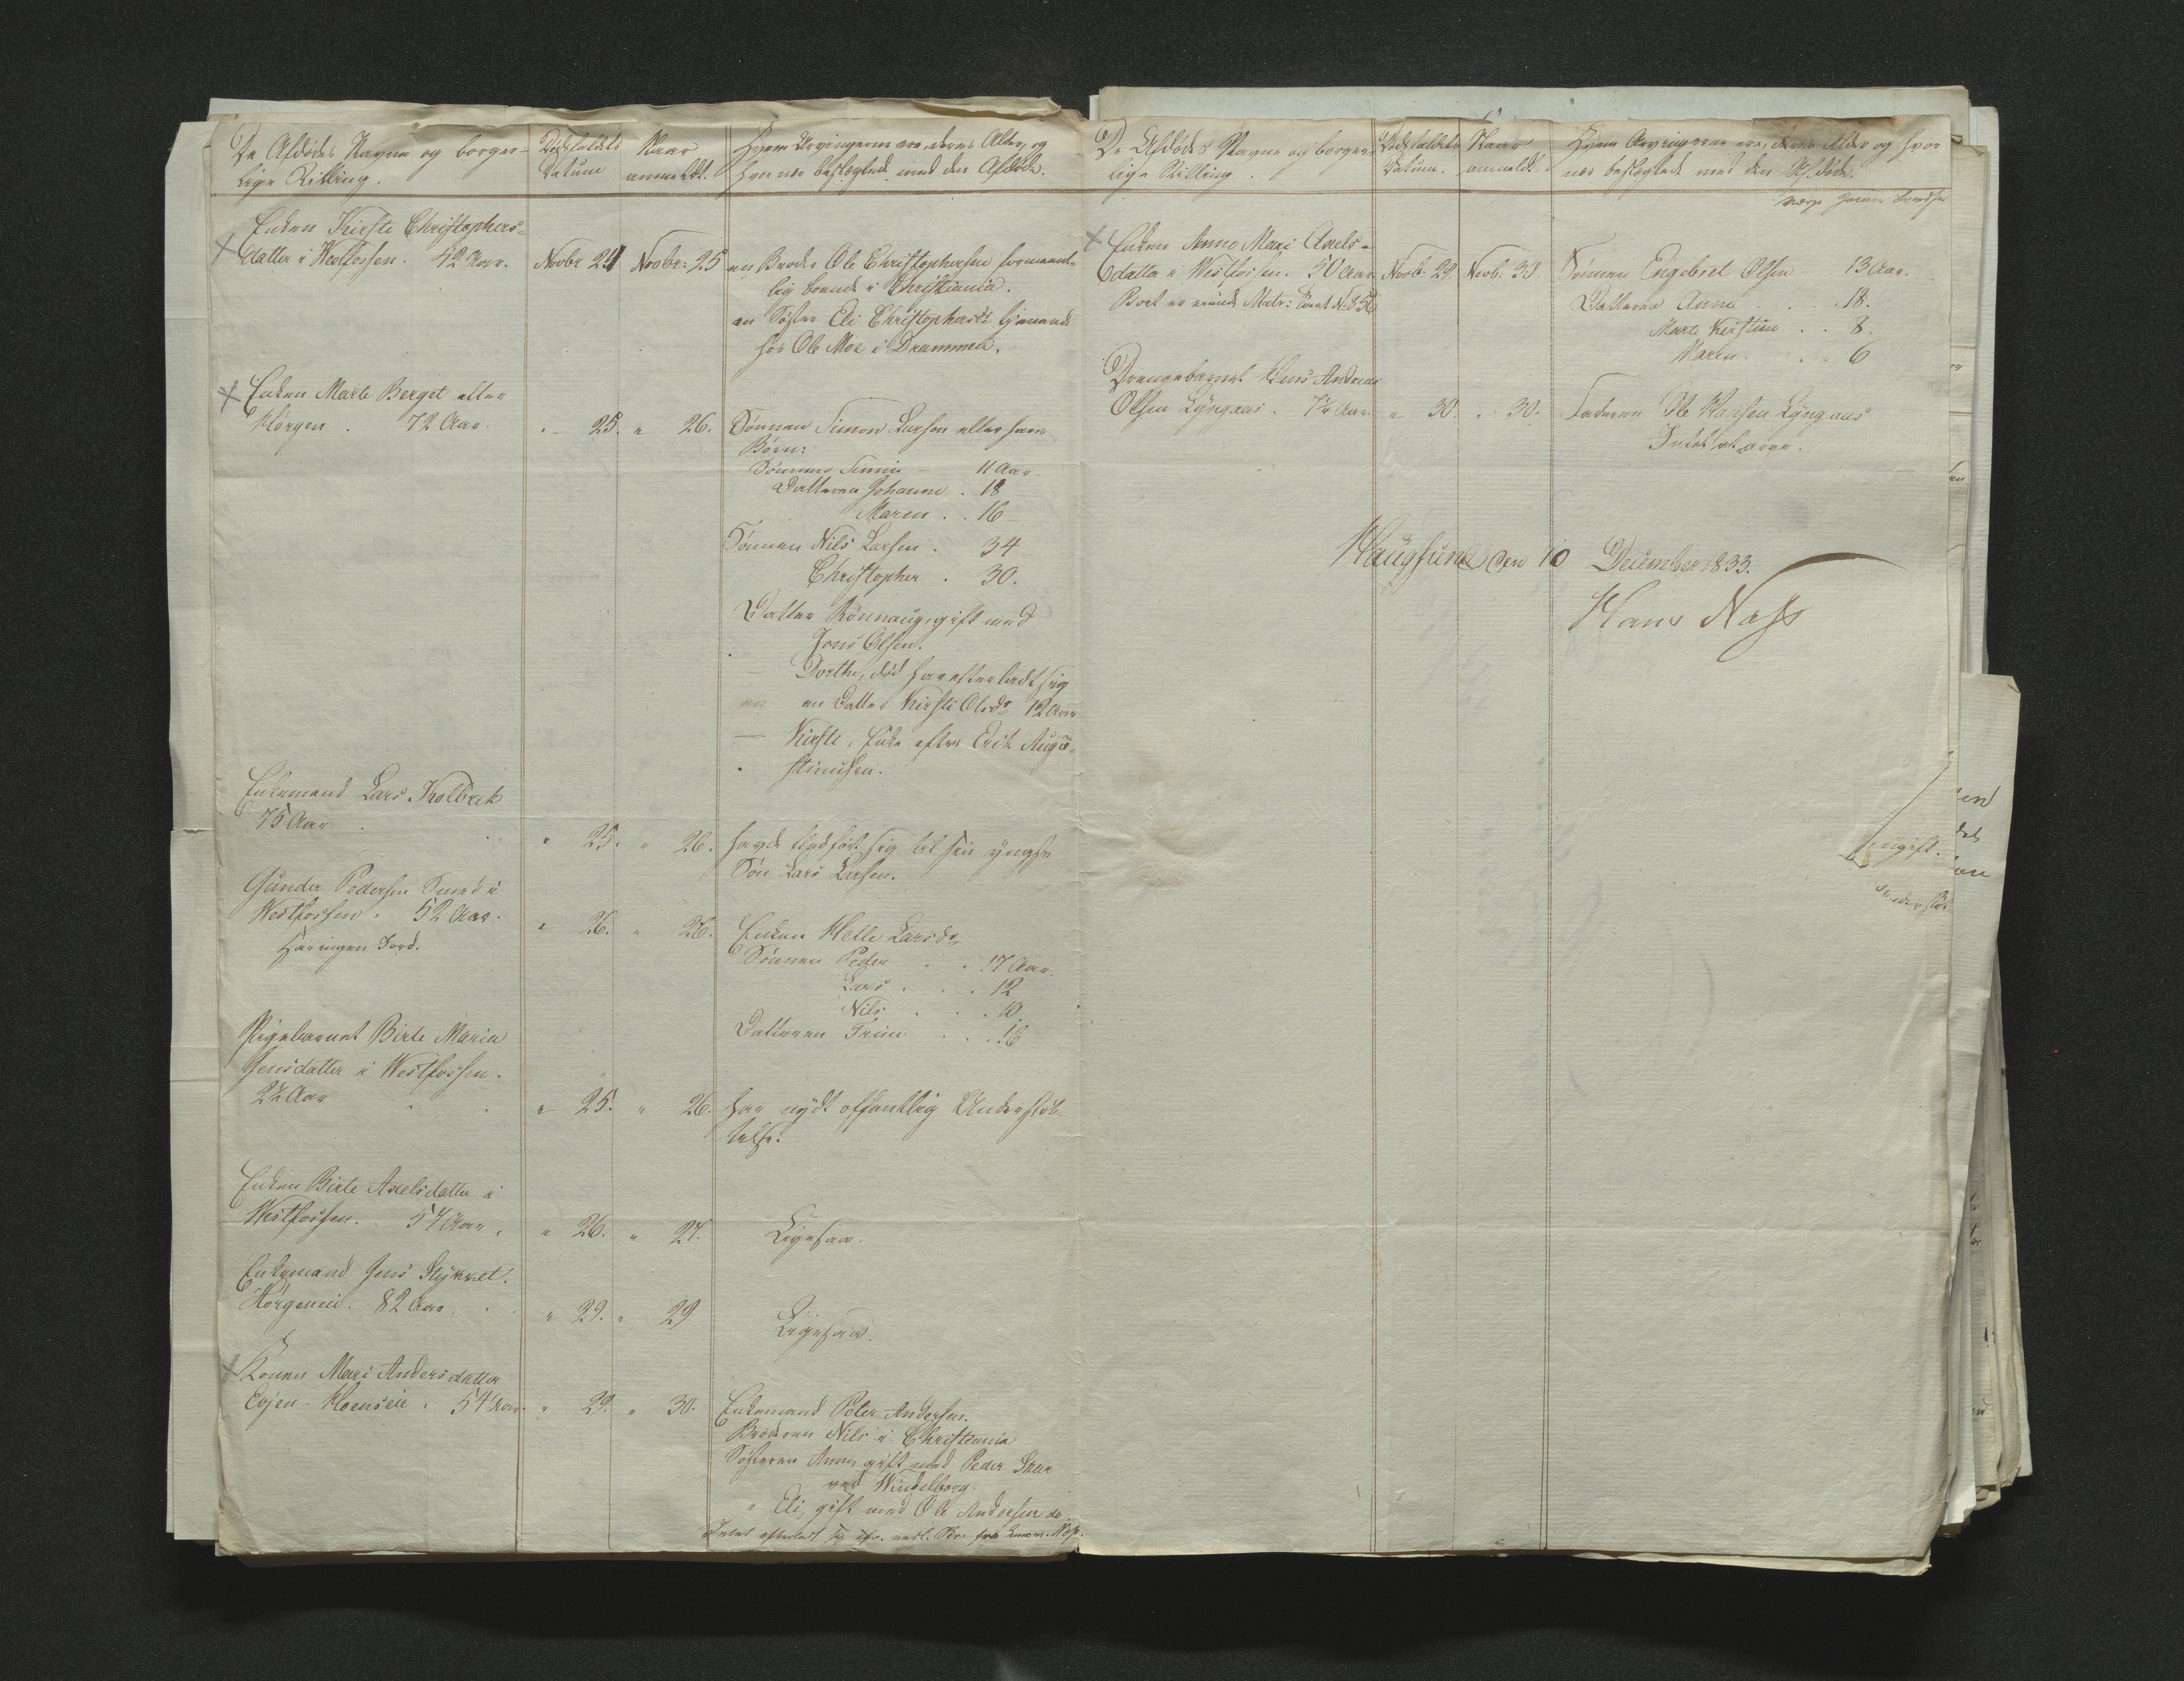 De Afdødes Navne og borger-
lige Stilling.
Dødsfaldets
Datum
Naar
anmeldt.
Hvem Arvingerne ere, deres Alder, og
hvor nær beslægtede med den Afdøde.
Enken Kirsti Christophers-
datter i Westfossen. 42 Aar.
Novbr 24
Novbr: 25
en Broder Ole Christophersen formeent-
lig boende i Christiania.
en Søster Eli Christophersdr tjenende
hos Ole Moe i Drammen.
Enken Marte Berget eller
Hörgen . 72 Aar.
" 25. " 26.
Sønnen Simon Larsen eller hans
Børn:
Sønnen - 11 Aar
Datteren Johanne . 18
Maren . . 16
Sønnen Nils Larsen . 34
Christopher . 30.
Datter Rönnaug, gift med
Jens Olsen.
— Dorthe, død har efterladt sig
en Datter Kirsti Olsdr 12 Aar
— Kirsti, Enke efter Erik Augu-
stinusen.
Enkemand Lars Kolbrek
75 Aar
" 25. " 26.
havde fledført sig til sin yngste
Søn Lars Larsen.
Gunder Pedersen Smed i
Westfossen . 52 Aar.
Har ingen Jord.
" 26. " 26.
Enken Helle Larsdr
Sønnen Peder . . 17 Aar.
Lars . . . 12
Nils . . . 10.
Datteren . . 16
Pigebarnet Birte Maria
Jensdatter i Westfossen.
2½ Aar
" 25. " 26.
har nydt offentlig Understøt-
telse.
Enken Birte Axelsdatter i
Westfossen. 54 Aar.
" 26. " 27.
Ligesaa.
Enkemand Jens Stykket.
Hörgeneie. 82 Aar.
" 29. " 29
Ligesaa.
Konen Mari Andersdatter
Eojen Hoenseie . 54 Aar.
" 29. " 30.
Enkemand Peter Andersen.
Broderen Nils i Christiania
Søsteren Anne gift med Peder
ved
" Eli, gift med Ole Andersen do.
Intet efterladt sig
De Afdødes Navne og borger-
lige Stilling.
Dødsfaldets
Datum.
Naar
anmeldt.
Hvem Arvingerne ere, deres Alder og hvor
nær beslægtede med den Afdøde.
Enken Anne Mari Axels-
datter i Westfossen. 50 Aar.
Novb. 29
Novb. 30.
Sønnen Engebret Olsen 13 Aar.
Datteren Anne . . 18.
Marte Kirstine . . 8.
Maren . . 6
Drengebarnet Hans Andreas
Olsen Lyngaas . 7½ Aar.
" 30. " 30.
Faderen Ole Hansen Lyngaas
Intet at arve.
Haugsund den 10 December 1833.
Hans Nass
ugift.